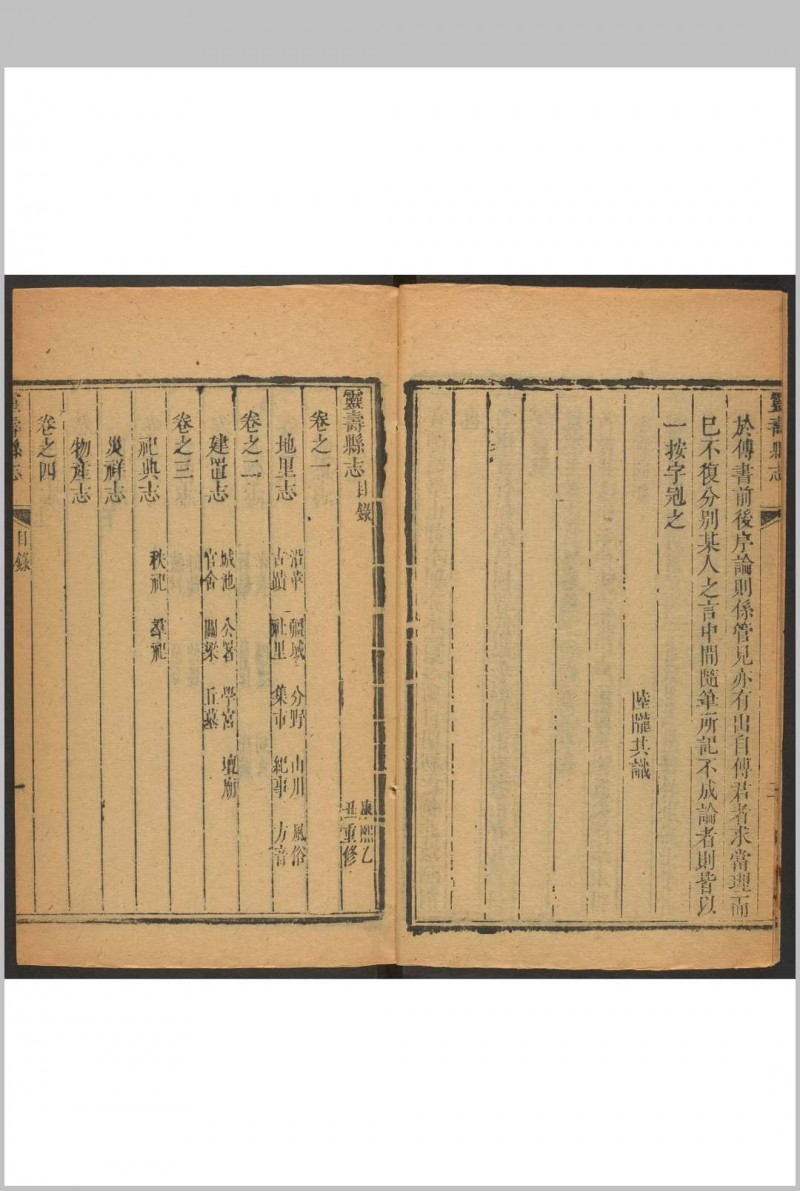 靈壽縣志
二
於傅書前後序論則係管見亦有出自傅君者求當理而
已不復分别某人之言中間隨筆所記不成論者則皆以
一按字冠之
陸隴其識
靈壽縣志目錄
康熙乙
丑重修
卷之一
地里志
沿革 疆域 分野 山川 風俗
古蹟 社里 集市 紀事 方音
卷之二
建置志
城池 公署 學宫 壇廟
官舍 關梁 丘墓
卷之三
祀典志
秩祀 羣祀
災祥志
物產志
卷之四
靈壽縣志
目錄
一